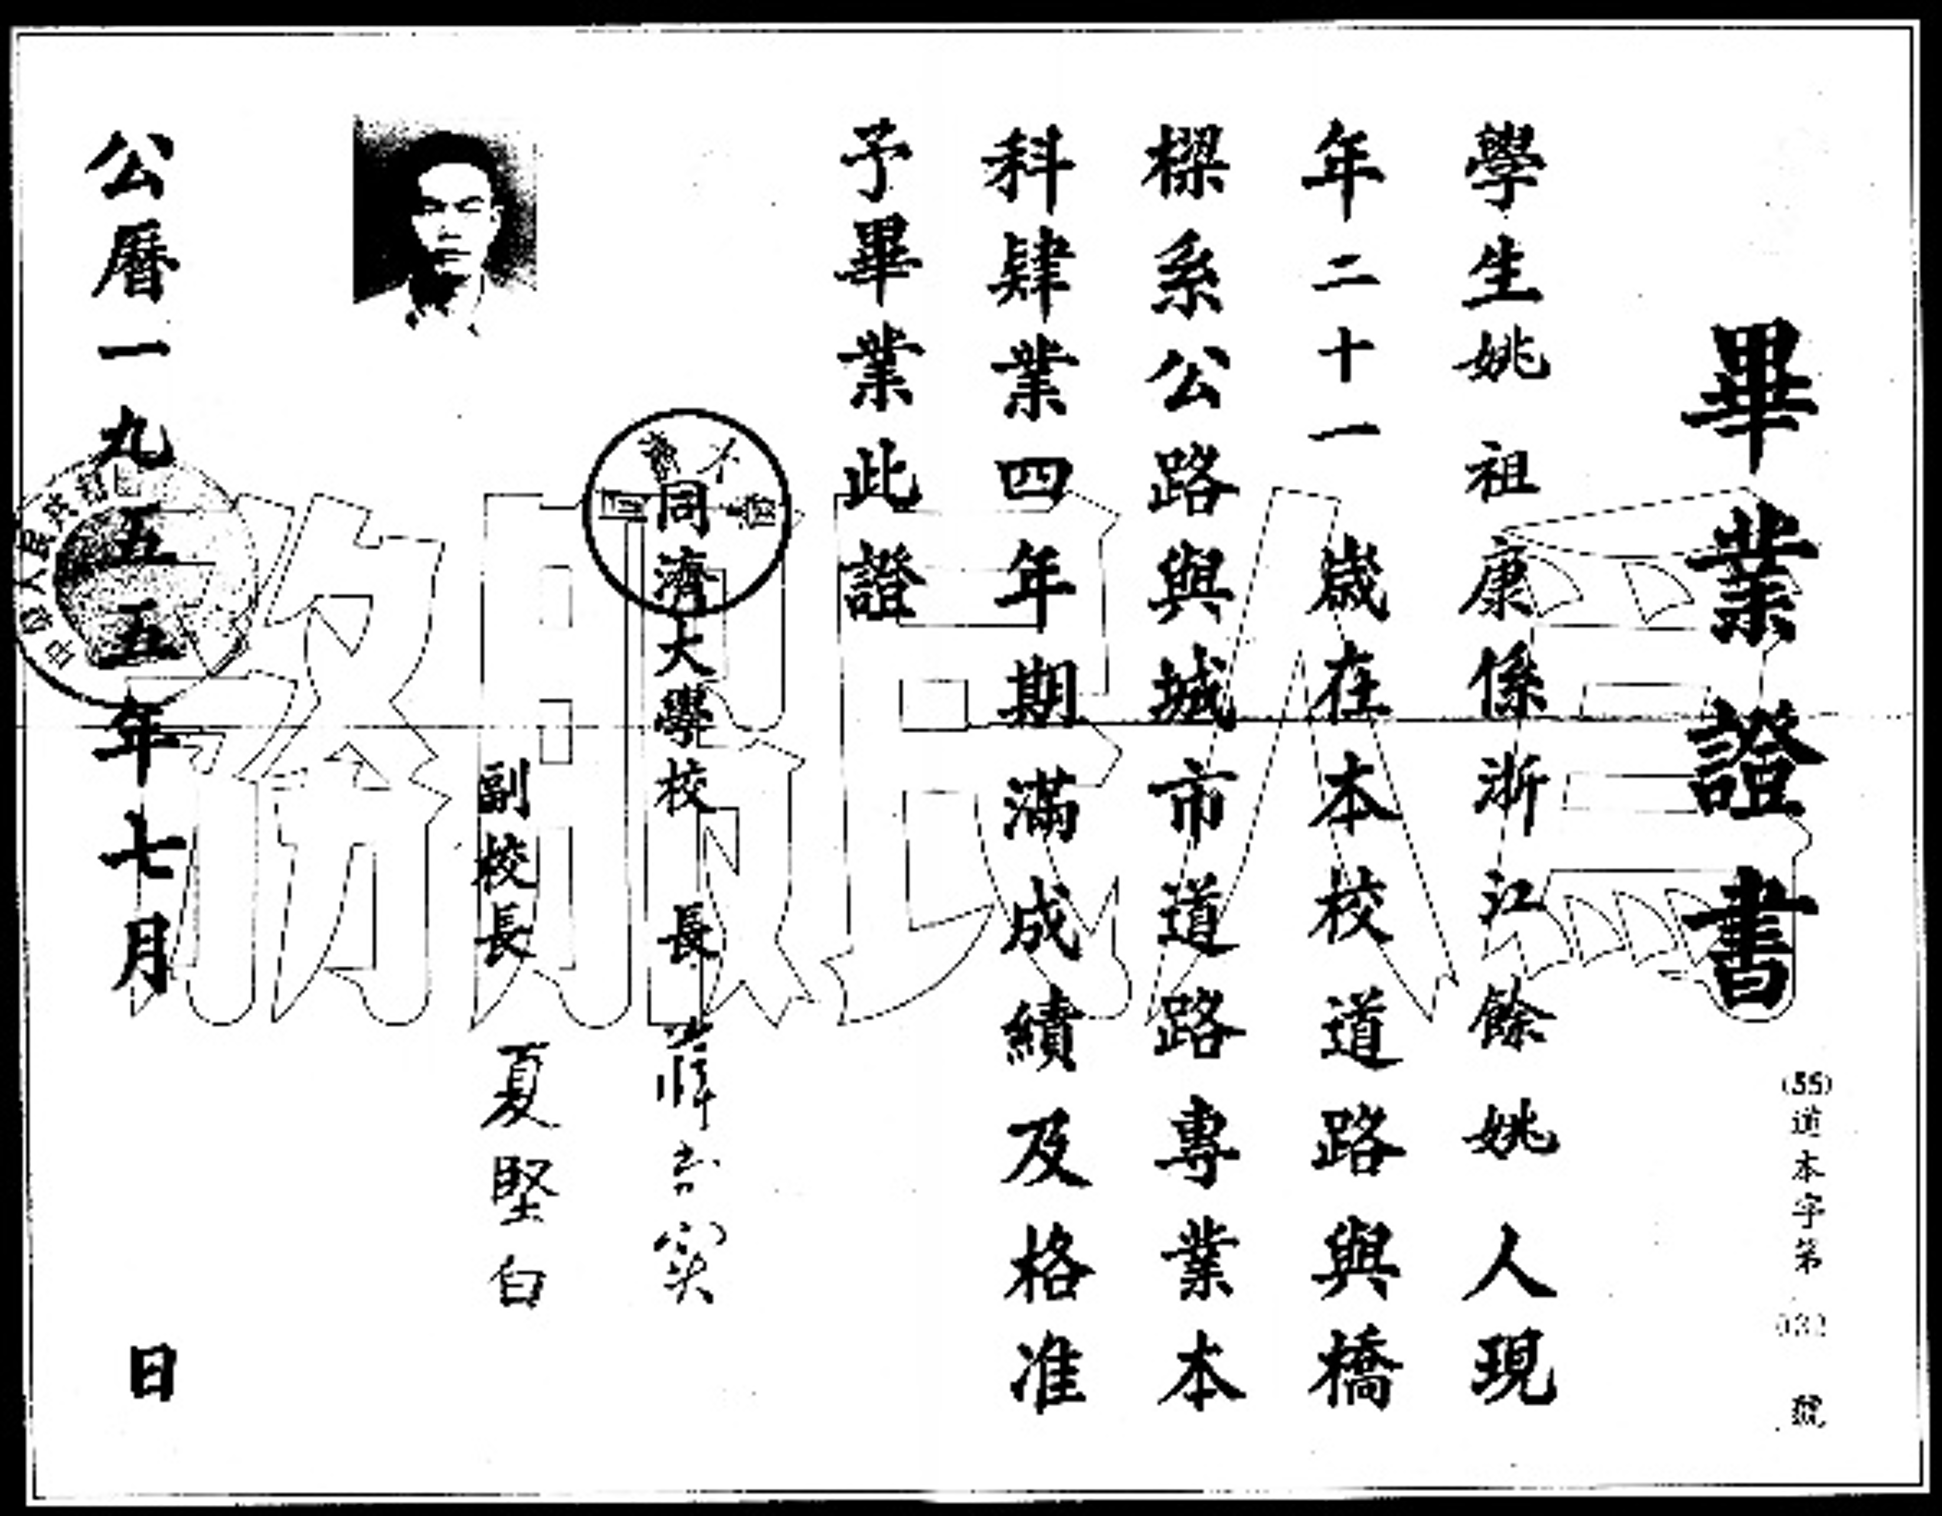 畢業證書
(55)道本字第 號
學生姚祖康係浙江餘姚人現
年二十一歲在本校道路與橋
樑系公路與城市道路專業本
科肄業四年期滿成績及格准
予畢業此證
同濟大學校長
副校長 夏堅白
公曆一九五五年七月 日
為人民服務